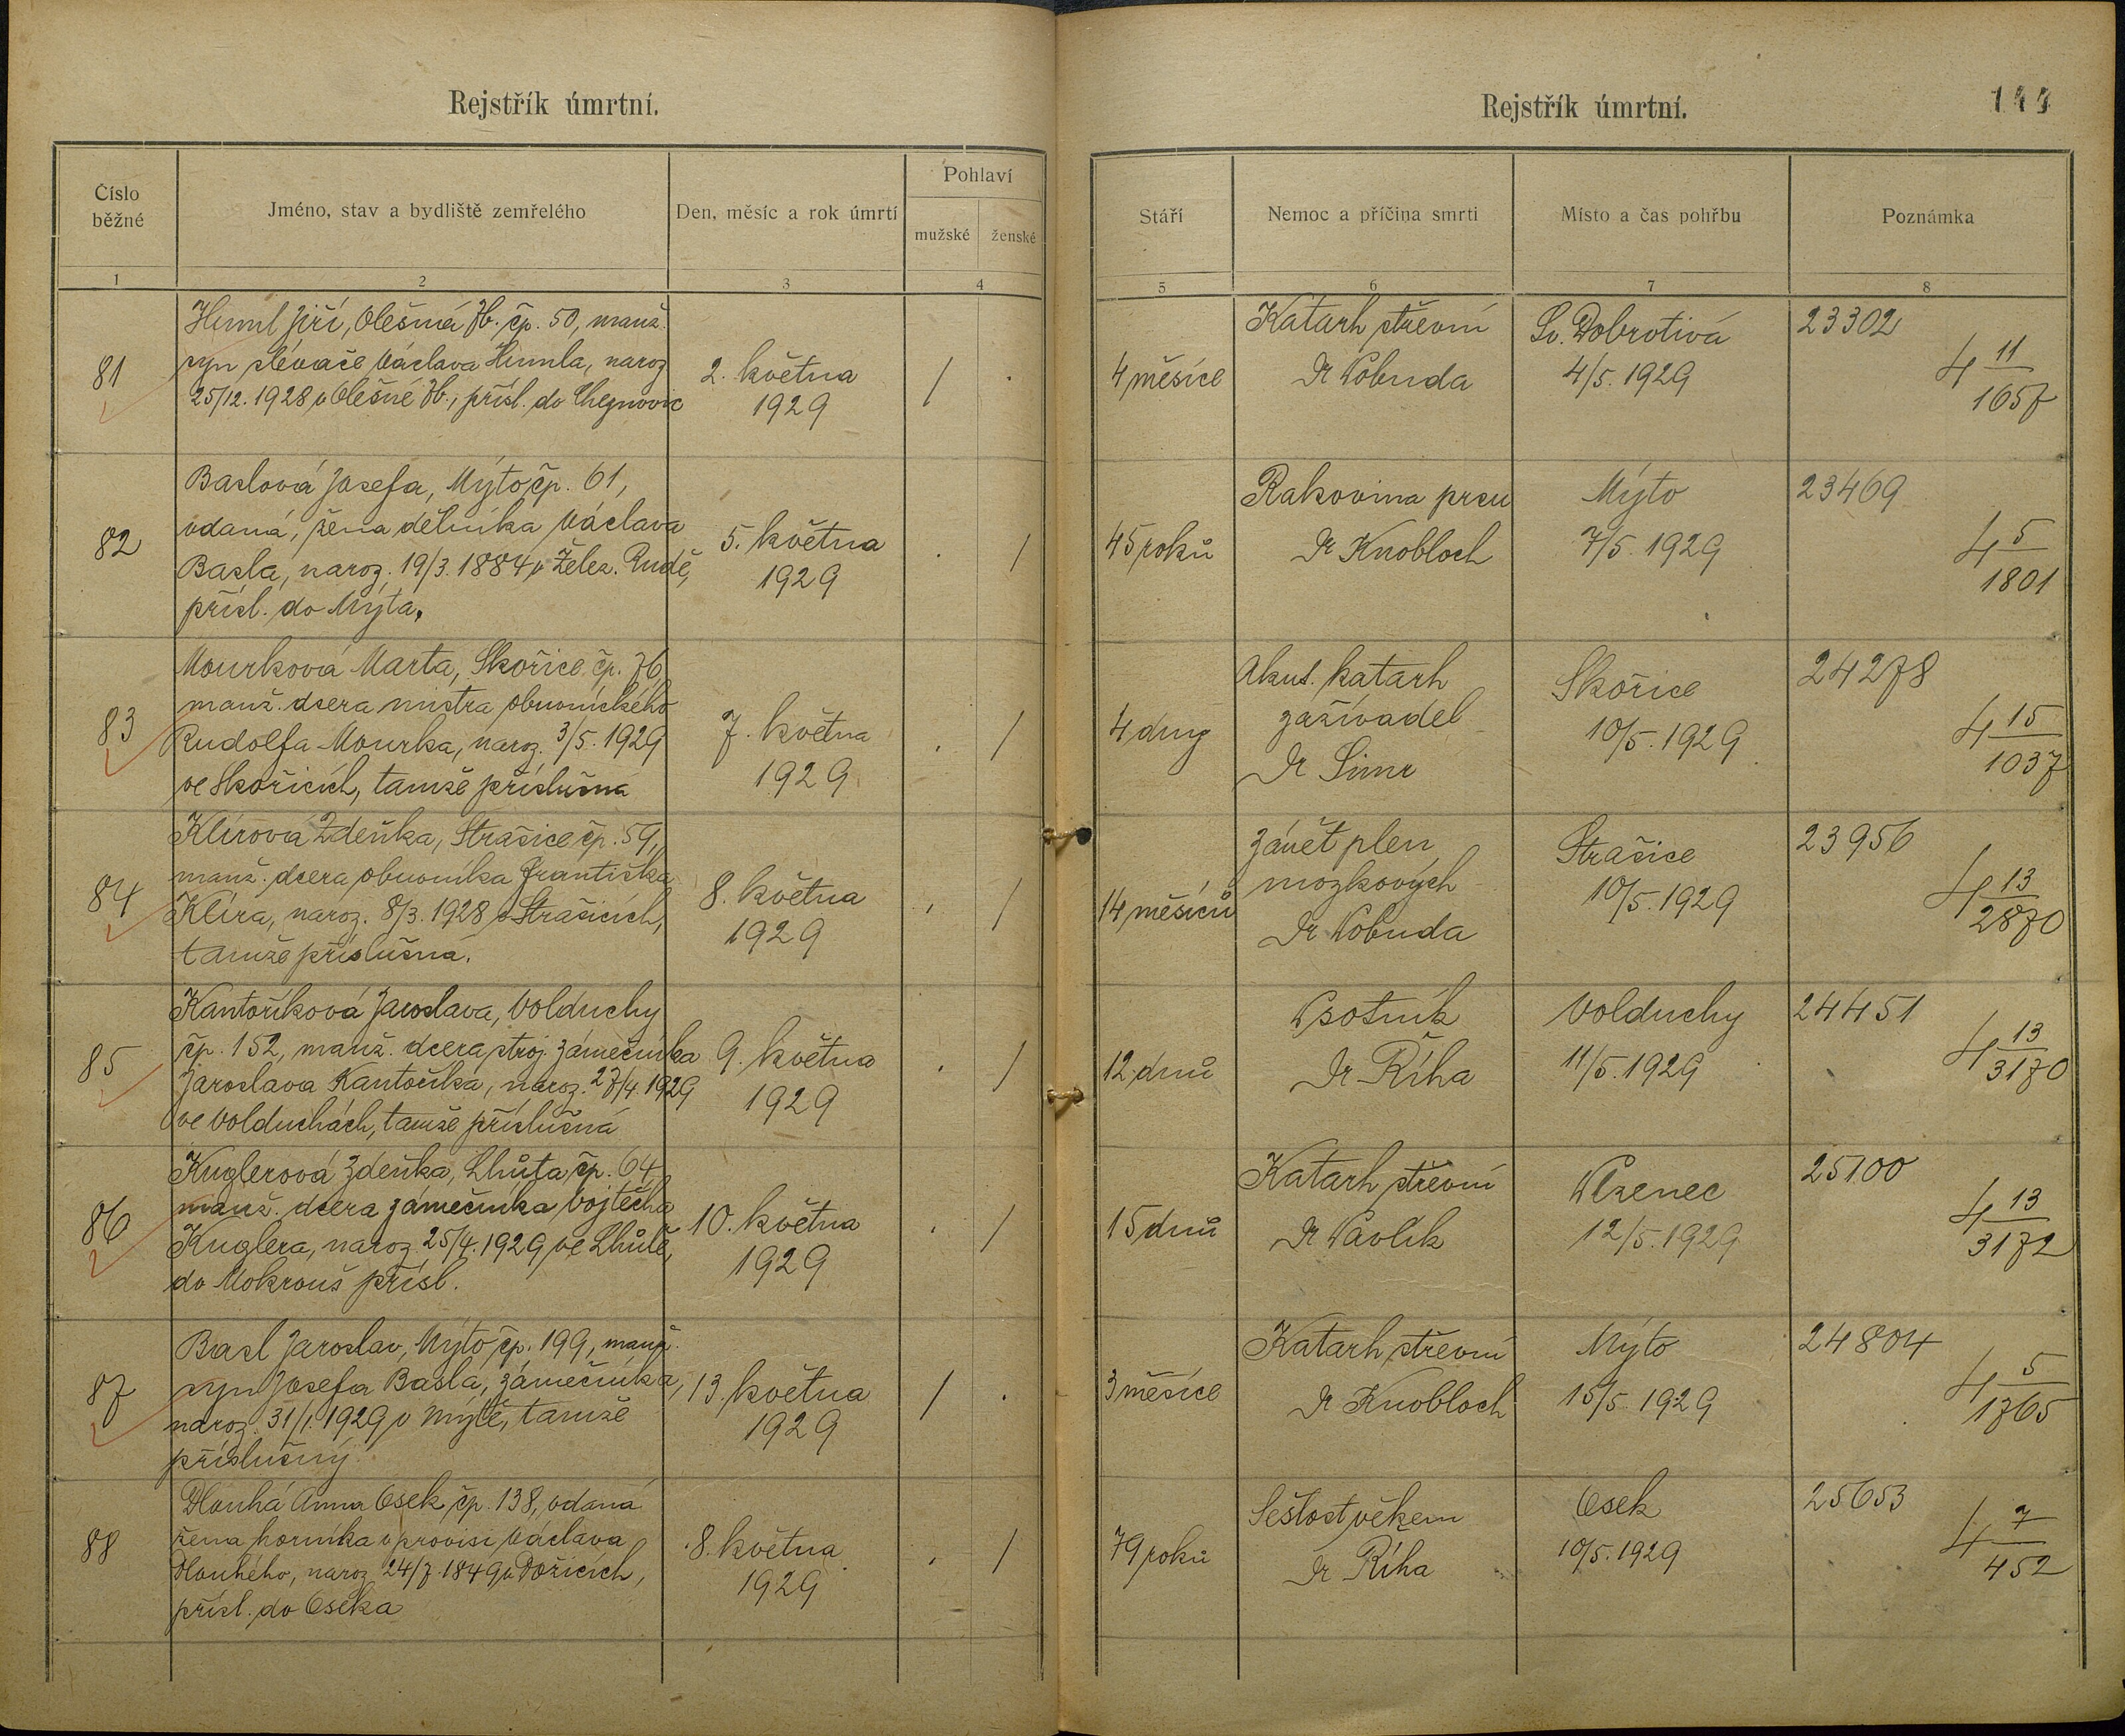 Rejstřík úmrtní.
Číslo běžné
Jméno, stav a bydliště zemřelého
Den, měsíc a rok úmrtí
Pohlaví
mužské
ženské
1
2
3
4
81
Huml Jiří, Olešná Zb. čp. 50, manž.
syn slévače Václava Humla, naroz.
25/12. 1928 v Olešné Zb., přísl. do Chejnovic
2. května
1929
/ .
82
Baslová Josefa, Mýto čp. 61,
vdaná, žena dělníka Václava
Basla, naroz. 19/3. 1884 v Želez. Rudě,
přísl. do Mýta.
5. května
1929
. /
83
Mourková Marta, Skořice čp. 76,
manž. dcera mistra obuvnického
Rudolfa Mourka, naroz. 3/5. 1929
ve Skořicích, tamže příslušná
7. května
1929
. /
84
Klírová Zdeňka, Strašice čp. 59,
manž. dcera obuvníka Františka
Klíra, naroz. 8/3. 1928 v Strašicích,
tamže příslušná.
8. května
1929
. /
85
Kantoříková Jaroslava, Volduchy
čp. 152, manž. dcera stroj. zámečníka
Jaroslava Kantoříka, naroz. 27/4. 1929
ve Volduchách, tamže příslušná
9. května
1929
. /
86
Kuglerová Zdeňka, Lhůta čp. 64,
manž. dcera zámečníka Vojtěcha
Kuglera, naroz. 25/4. 1929 ve Lhůtě,
do Mokrouš přísl.
10. května
1929
. /
87
Basl Jaroslav, Mýto čp. 199, manž.
syn Josefa Basla, zámečníka,
naroz. 31/1. 1929 v Mýtě, tamže
příslušný.
13. května
1929
/ .
88
Dlouhá Anna Osek čp. 138, vdaná
žena horníka v provisi Václava
Dlouhého, naroz. 24/7. 1849 v Pořicích,
přísl. do Oseka
8. května
1929
. /
Rejstřík úmrtní.
Stáří
Nemoc a příčina smrti
Místo a čas pohřbu
Poznámka
5
6
7
8
4 měsíce
Katarh střevní
Dr Pobuda
Sv. Dobrotivá
4/5. 1929
23302
4 11/1657
45 roků
Rakovina prsu
Dr Knobloch
Mýto
7/5. 1929
23469
4 5/1801
4 dny
Akut. katarh
zažívadel
Dr Simr
Skořice
10/5. 1929
24278
4 15/1037
14 měsíců
Zánět plen
mozkových
Dr Pobuda
Strašice
10/5. 1929
23956
4 13/2870
12 dnů
Psotník
Dr Říha
Volduchy
11/5. 1929
24451
4 13/3170
15 dnů
Katarh střevní
Dr Pavlík
Plzenec
12/5. 1929
25100
4 13/3172
3 měsíce
Katarh střevní
Dr Knobloch
Mýto
15/5. 1929
24804
4 5/1765
79 roků
Sešlost věkem
Dr Říha
Osek
10/5. 1929
25653
4 7/452